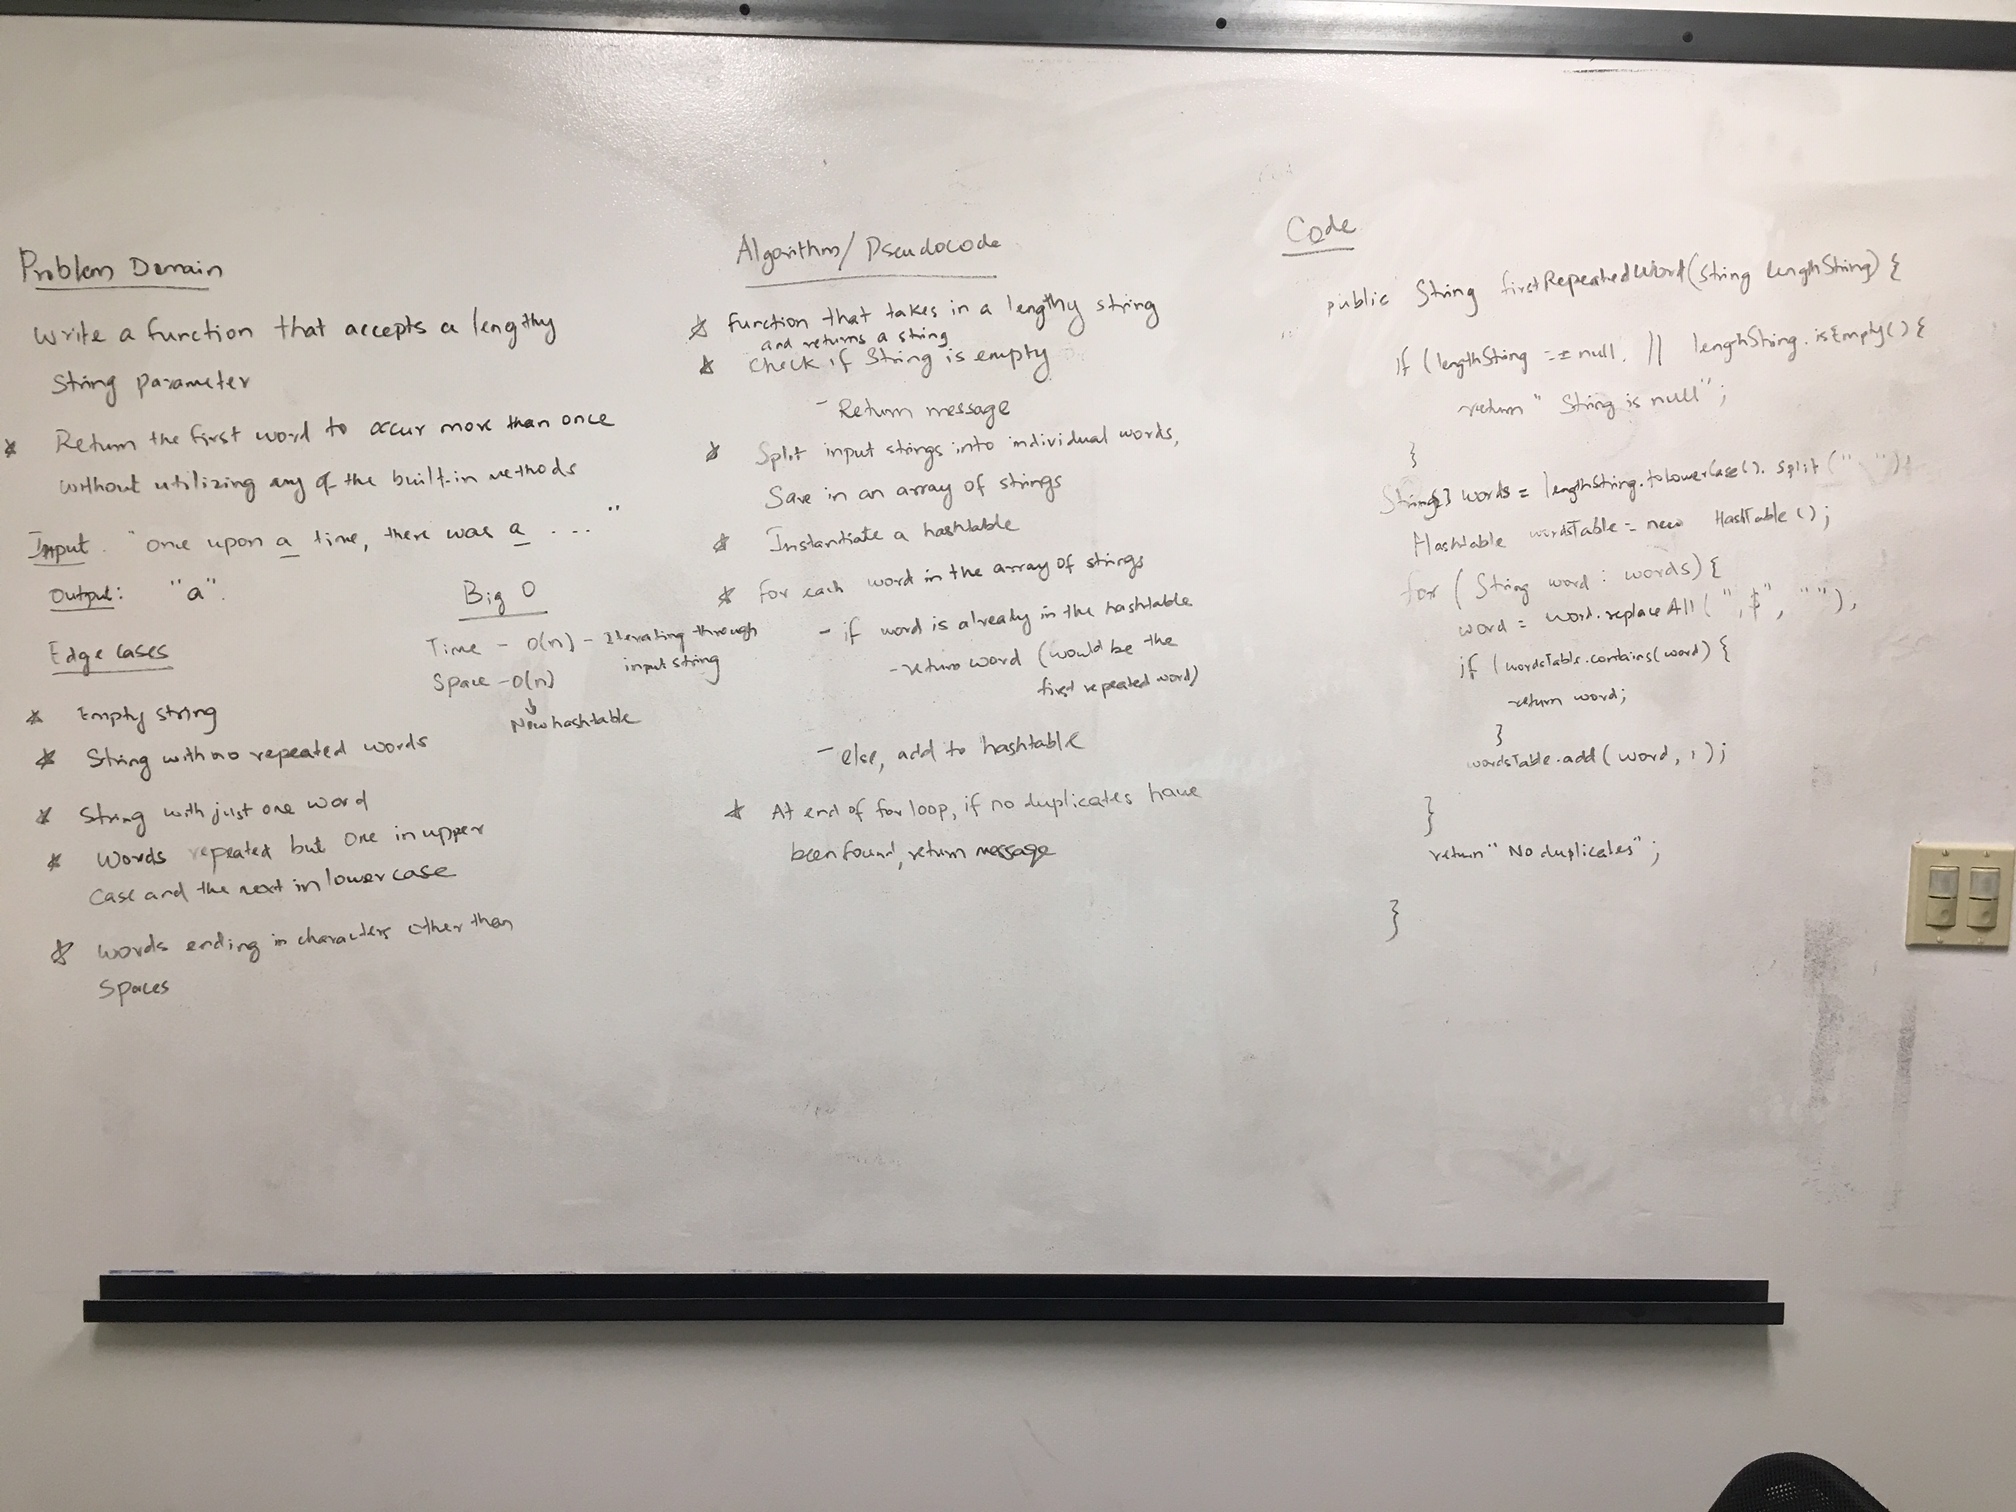 Problem Domain
Write a function that accepts a lengthy
String parameter
* Return the first word to occur more than once
without utilizing any of the built-in methods
Input. "once upon a time, there was a ... "
Output: "a".
Edge cases
* Empty string
* String with no repeated words
* String with just one word
* Words repeated but one in upper
case and the next in lower case
* words ending in characters other than
spaces
Big O
Time - O(n) - Iterating through
input string
Space - O(n)
↓
New hashtable
Algorithm/ Pseudocode
* function that takes in a lengthy string
and returns a string
* check if String is empty
- Return message
* Split input strings into individual words,
Save in an array of strings
* Instantiate a hashtable
* For each word in the array of strings
- if word is already in the hashtable
- return word (would be the
first repeated word)
- else, add to hashtable
* At end of for loop, if no duplicates have
been found, return message
Code
public String firstRepeatedWord(String lenghString) {
if (lengthString == null. || lenghString.isEmpty() {
return " String is null";
}
String[] words = lengthString.toLowerCase(). split (" ");
Hashtable wordsTable = new HashTable();
for ( String word : words) {
word = word.replaceAll(",$", "");
if (wordsTable.contains(word) {
return word;
}
wordsTable.add( word, 1 );
}
return " No duplicates" ;
}